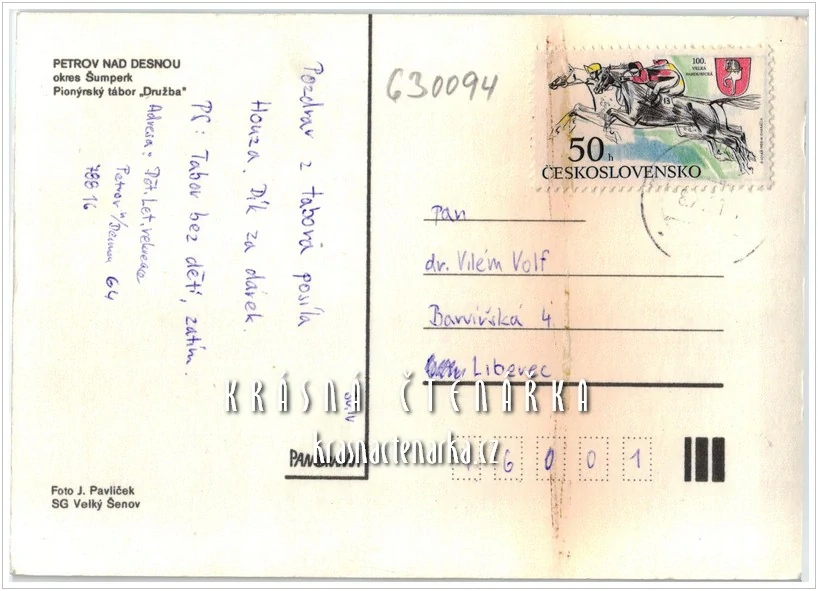 PETROV NAD DESNOU
okres Šumperk
Pionýrský tábor „Družba"
Pozdrav z tábora posílá
Honza. Dík za dárek.
PS: Tábor bez dětí, zatím.
Adresa: Dět. Let. rekreace
Petrov n/Desnou 64
788 16
630094
100.
VELKÁ
PARDUBICKÁ
50 h
ČESKOSLOVENSKO
pan
dr. Vilém Volf
Barvířská 4
Liberec
KRÁSNÁ ČTENÁŘKA
krasnactenarka.cz
46001
Foto J. Pavlíček
SG Velký Šenov